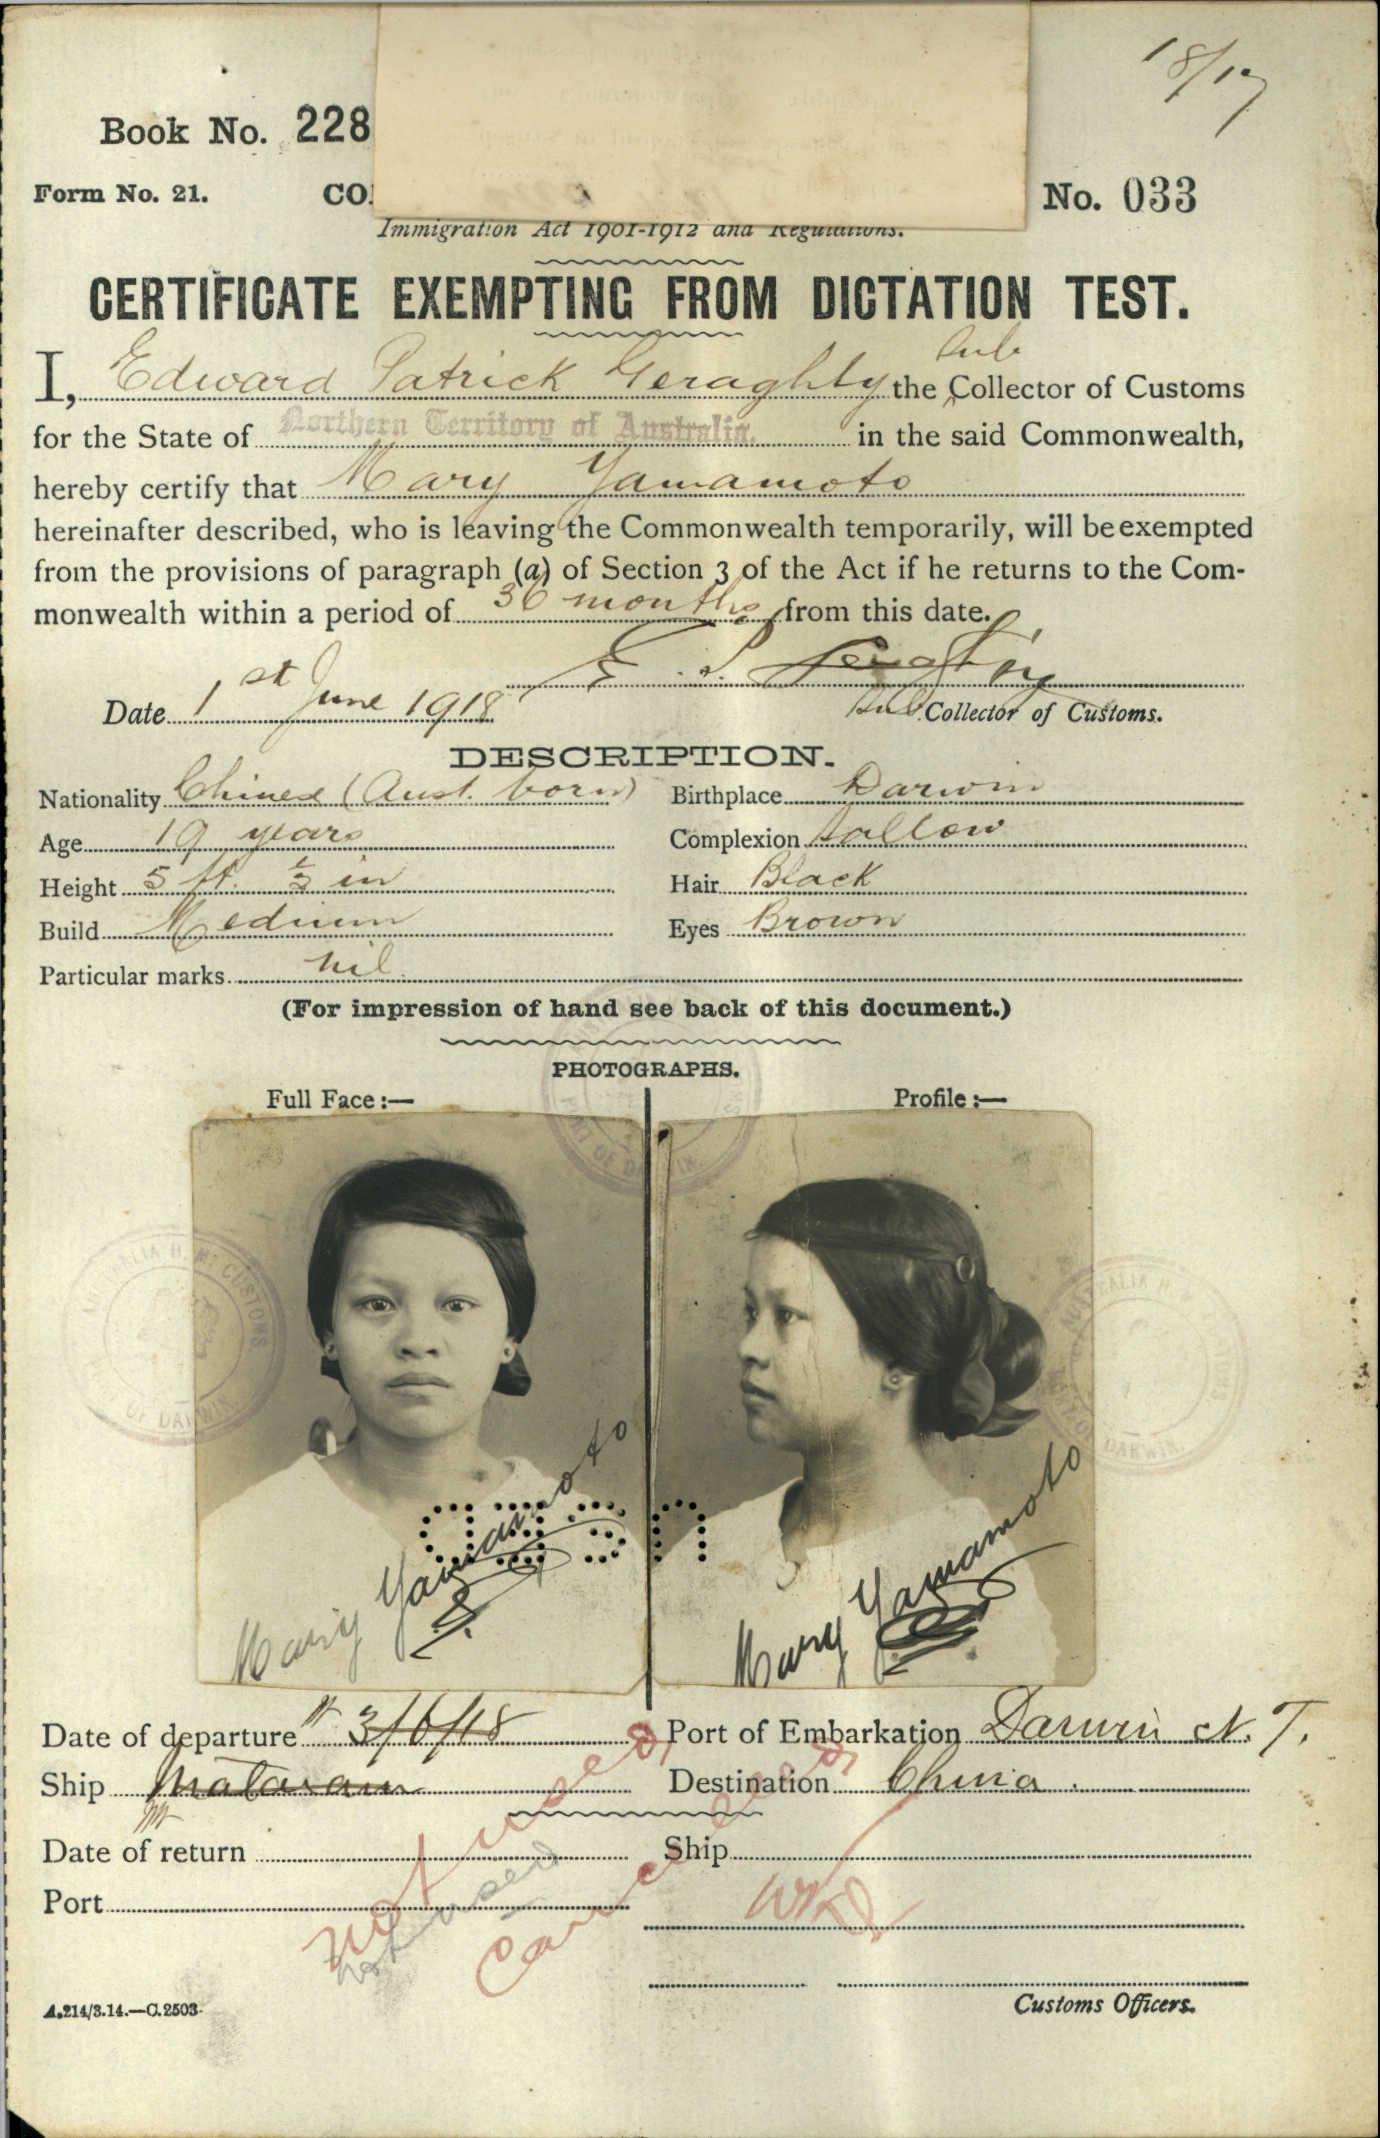 18/17
Book No. 228
Form No. 21.
No. 033
Immigration Act 1901-1912 and Regulations.
CERTIFICATE EXEMPTING FROM DICTATION TEST.
I, Edward Patrick Geraghty the Sub Collector of Customs
for the State of Northern Territory of Australia. in the said Commonwealth,
hereby certify that Mary Yamamoto
hereinafter described, who is leaving the Commonwealth temporarily, will be exempted
from the provisions of paragraph (a) of Section 3 of the Act if he returns to the Com-
monwealth within a period of 36 months from this date.
E. P. Geraghty
Date 1st June 1918
Sub Collector of Customs.
DESCRIPTION.
Nationality Chinese (Aust. born) Birthplace Darwin
Age 19 years Complexion Sallow
Height 5 ft. ½ in Hair Black
Build Medium Eyes Brown
Particular marks nil.
(For impression of hand see back of this document.)
PHOTOGRAPHS.
Full Face:— Profile:—
AUSTRALIA H. M. CUSTOMS
PORT OF DARWIN.
Mary Yamamoto
Mary Yamamoto
Date of departure 3/6/18 Port of Embarkation Darwin N. T.
Ship Mataram Destination China.
Date of return Ship
Port
not used
not used
Cancelled
A.214/3.14.—C.2503.
Customs Officers.